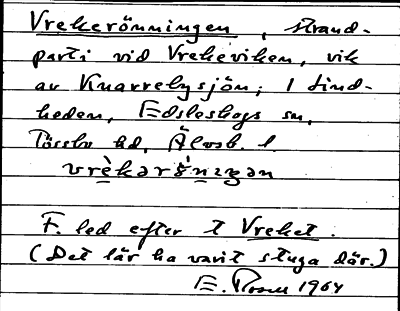 Vrekerönningen, strand-
parti vid Vrekeviken, vik
av Knarrebysjön; 1 Lind-
heden, Edsleskogs sn,
Tössbo hd, Älvsb. l
vrèkərö́nıŋən
F. led efter t Vreket.
(Det lär ha varit stuga där.)
E. 1964